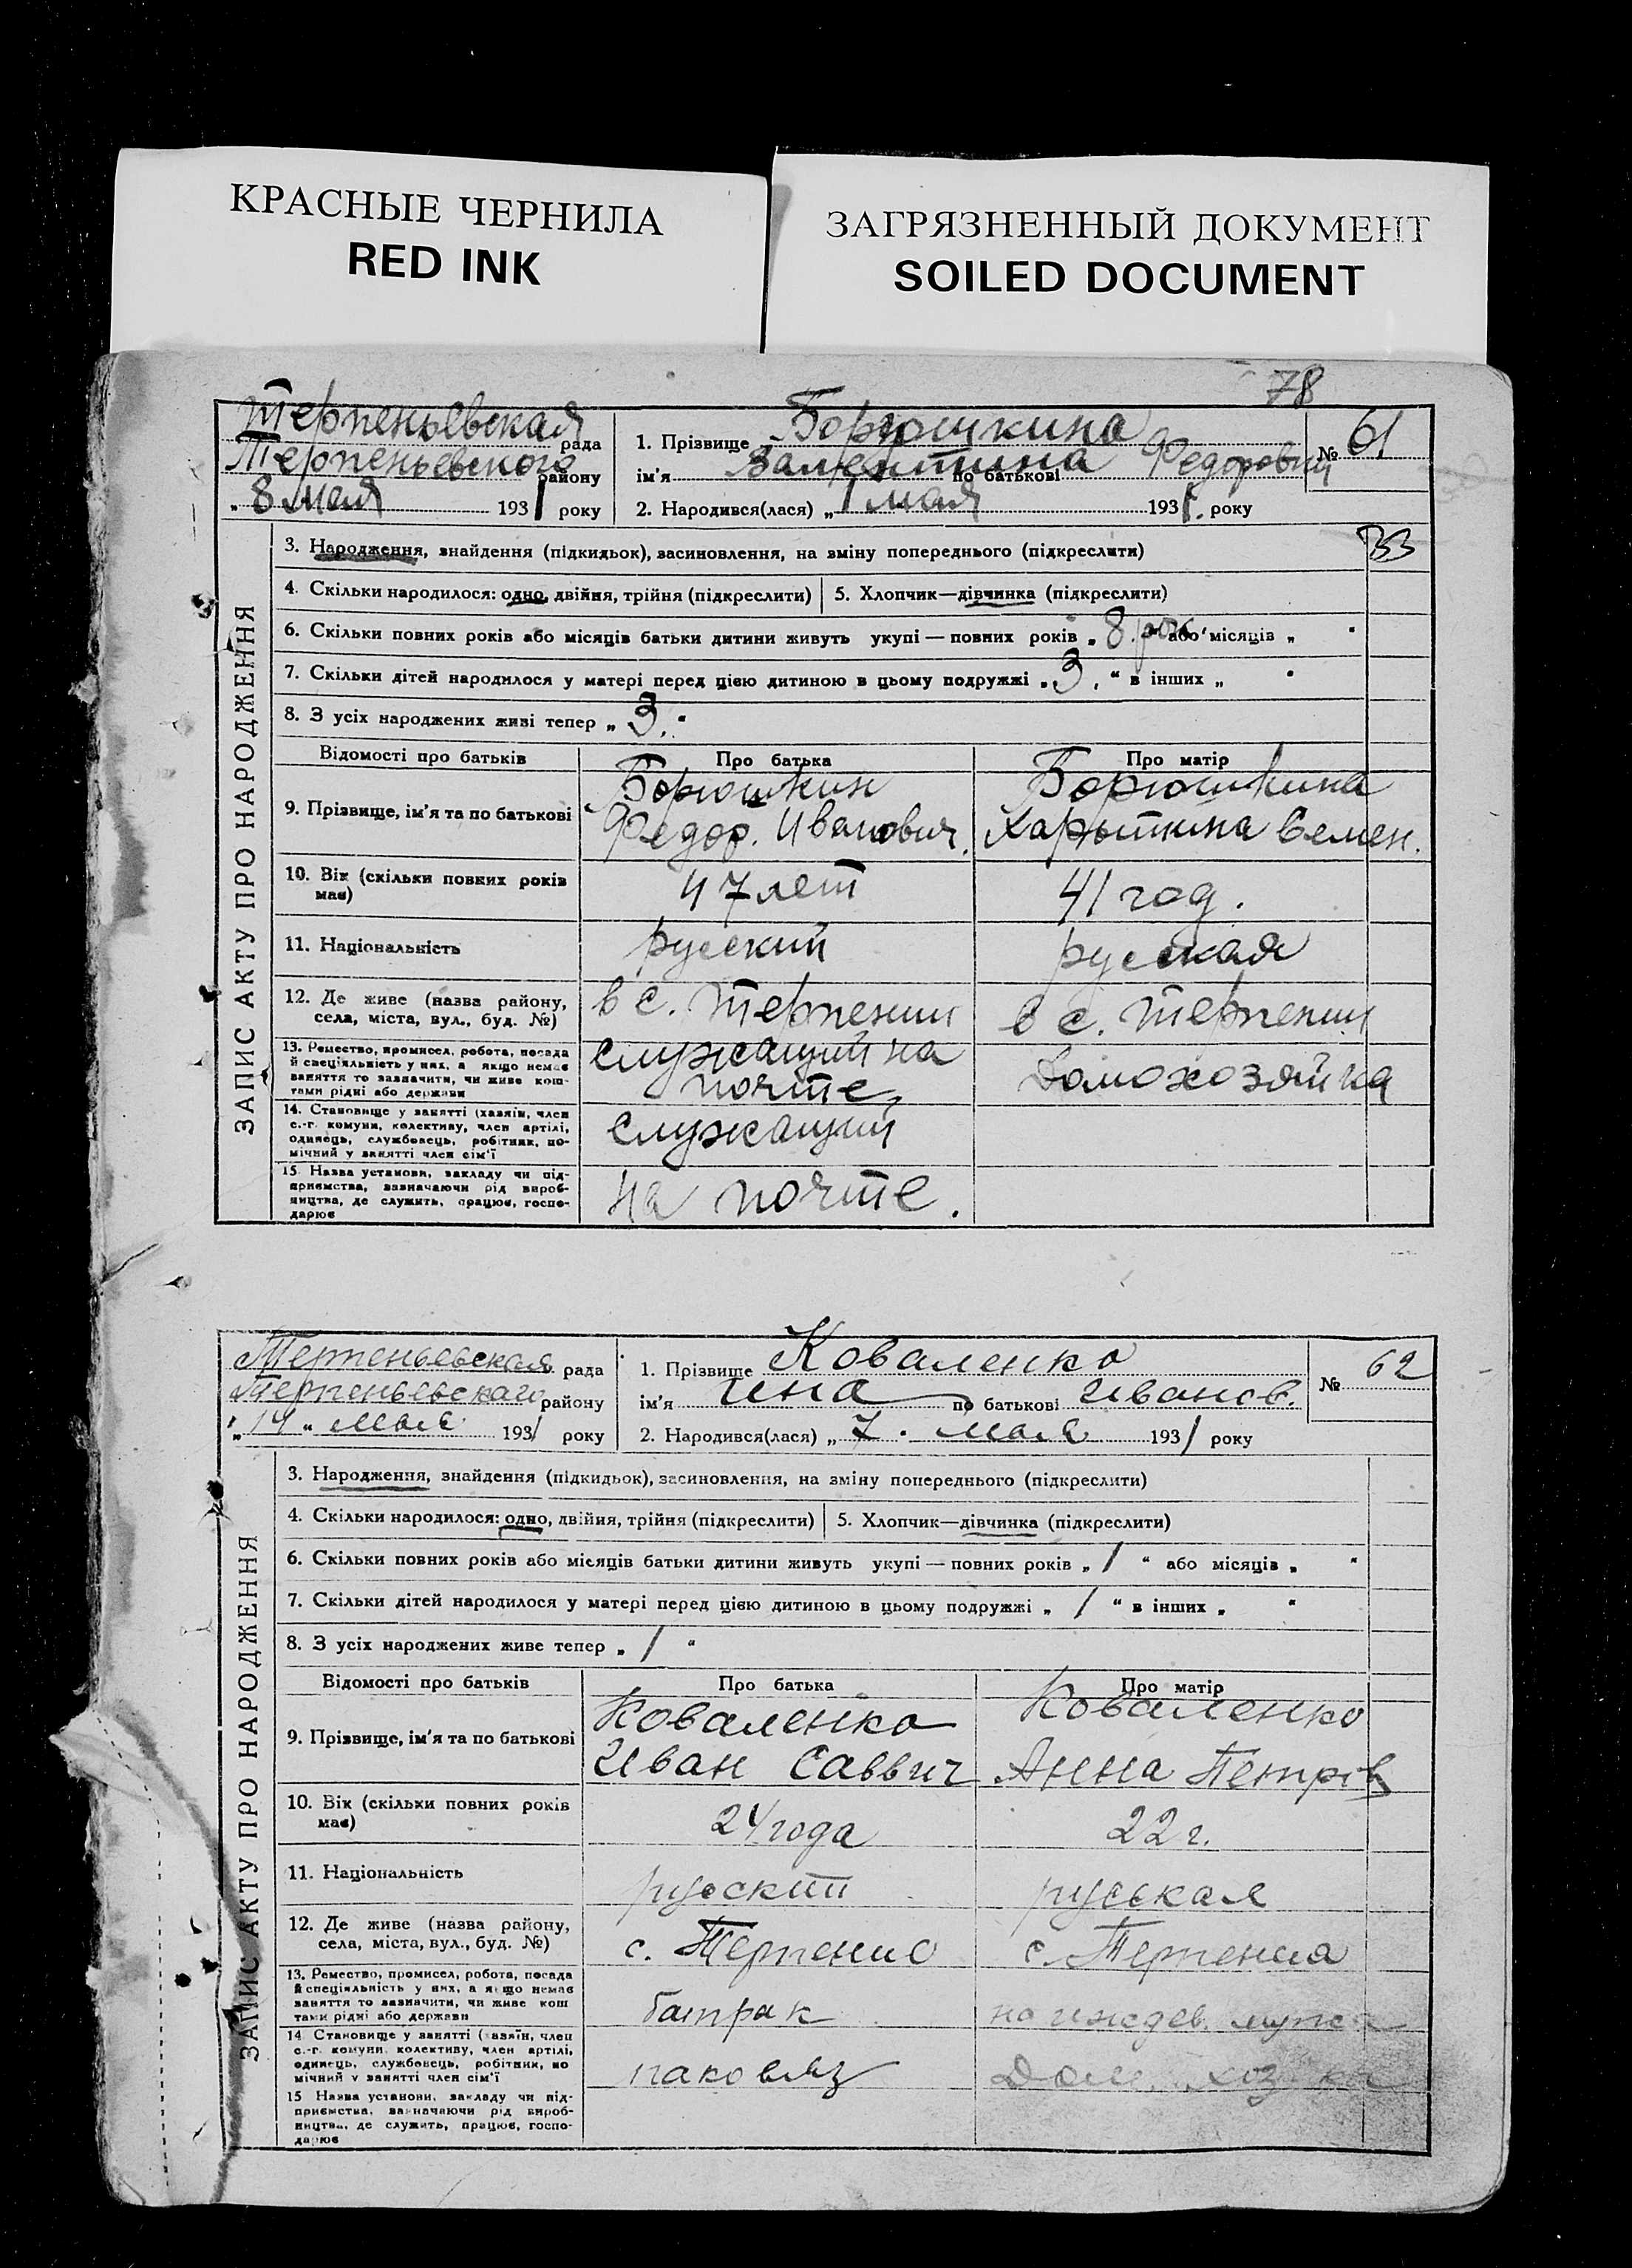 КРАСНЫЕ ЧЕРНИЛА
RED INK
ЗАГРЯЗНЕННЫЙ ДОКУМЕНТ
SOILED DOCUMENT
78
Терпеньевская рада
Терпеньевского району
„ 8 мая 1931 року
1. Прізвище Борюшкина
ім'я Валентина по батькові Федоровна
№ 61
2. Народився(лася) „ 1 мая 1931. року
ЗАПИС АКТУ ПРО НАРОДЖЕННЯ
3. Народження, знайдення (підкидьок), засиновлення, на зміну попереднього (підкреслити)
33
4. Скільки народилося: одно, двійня, трійня (підкреслити) 5. Хлопчик—дівчинка (підкреслити)
6. Скільки повних років або місяців батьки дитини живуть укупі — повних років „ 8 рок або місяців „ "
7. Скільки дітей народилося у матері перед цією дитиною в цьому подружжі „ 3. " в інших „ "
8. З усіх народжених живі тепер „ 3. "
Відомості про батьків Про батька Про матір
9. Прізвище, ім'я та по батькові
Борюшкин
Федор. Иванович.
Борюшкина
Харытина Семен.
10. Вік (скільки повних років має) 47 лет 41 год.
11. Національність русский русская
12. Де живе (назва району,
села, міста, вул., буд. №) в с. Терпении в с. Терпении
13. Ремество, промисел, робота, посада
й спеціяльність у них, а якщо немає
заняття то зазначити, чи живе кош-
тами рідні або держави
служащий на
почте,
Домохозяйка
14. Становище у занятті (хазяїн, член
с.-г. комуни, колективу, член артілі,
одинець, службовець, робітник, по-
мічний у занятті член сім'ї
служащий
15. Назва установи, закладу чи під-
приємства, зазначаючи рід вироб-
ництва, де служить, працює, госпо-
дарює
на почте.
Терпеньевская рада
Терпеньевского району
„ 14 " мая 1931 року
1. Прізвище Коваленко
ім'я Ина по батькові Иванов.
№ 62
2. Народився(лася) „ 7. мая 1931 року
ЗАПИС АКТУ ПРО НАРОДЖЕННЯ
3. Народження, знайдення (підкидьок), засиновлення, на зміну попереднього (підкреслити)
4. Скільки народилося: одно, двійня, трійня (підкреслити) 5. Хлопчик—дівчинка (підкреслити)
6. Скільки повних років або місяців батьки дитини живуть укупі — повних років „ 1 " або місяців „ "
7. Скільки дітей народилося у матері перед цією дитиною в цьому подружжі „ 1 " в інших „ "
8. З усіх народжених живе тепер „ 1 "
Відомості про батьків Про батька Про матір
9. Прізвище, ім'я та по батькові
Коваленко
Иван Саввич
Коваленко
Анна Петров
10. Вік (скільки повних років має) 24 года 22 г.
11. Національність русский руськая
12. Де живе (назва району,
села, міста, вул., буд. №) с. Терпение с. Терпения
13. Ремество, промисел, робота, посада
й спеціяльність у них, а якщо немає
заняття то зазначити, чи живе кош
тами рідні або держави
батрак
на иждев. мужа
14. Становище у занятті (хазяїн, член
с.-г. комуни, колективу, член артілі,
одинець, службовець, робітник, по
мічний у занятті член сім'ї
15. Назва установи, закладу чи під-
приємства, зазначаючи рід вироб-
ництва, де служить, працює, госпо-
дарює